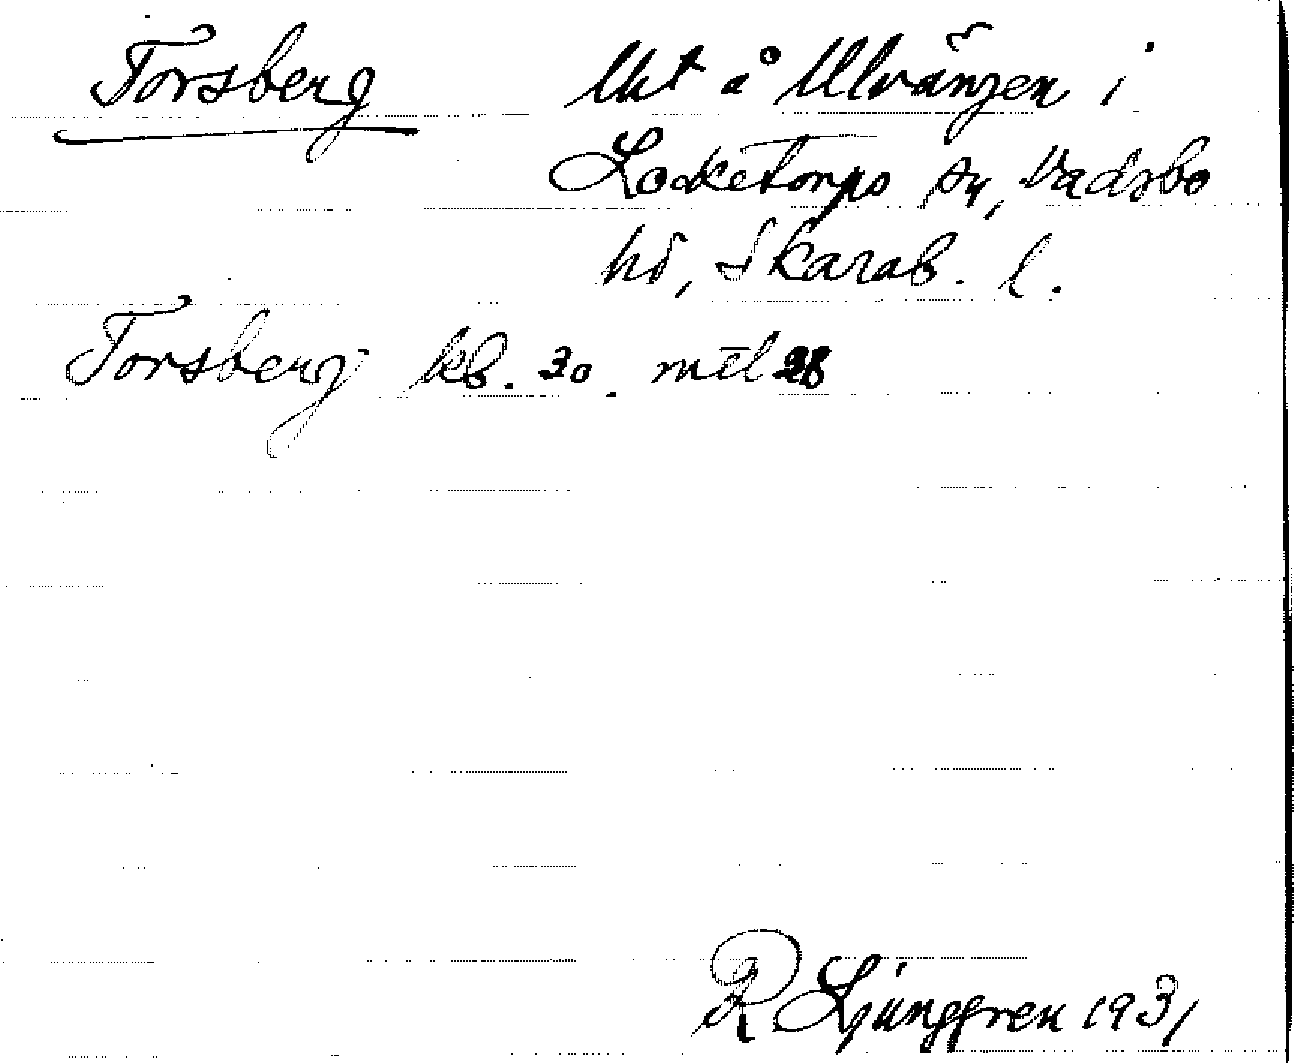 Torsberg Utt å Ulvängen i
Locketorps sn, Vadsbo
hd, Skarab. l.
Torsberg kb. 30. mtl 28
R Ljunggren 1931